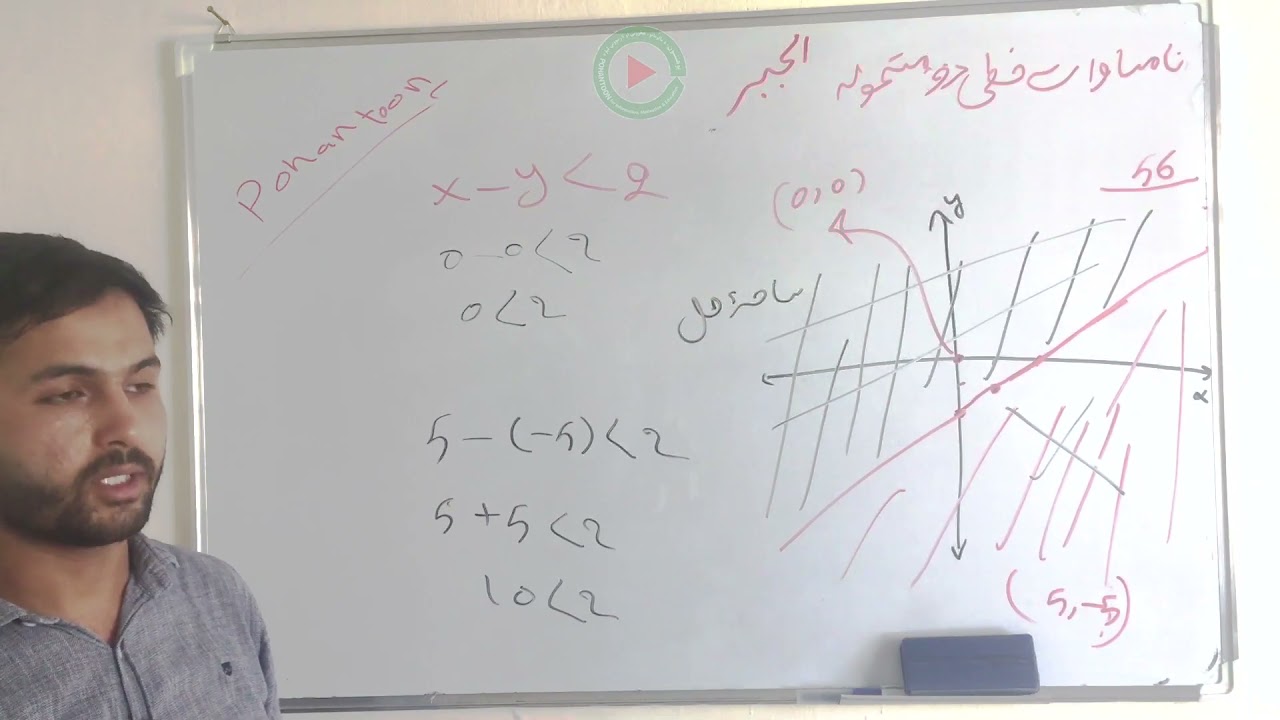 الجبر
نامساوات خطی دو مجهوله
56
Pohantoon
x - y < 2
0 - 0 < 2
0 < 2
5 - (-5) < 2
5 + 5 < 2
10 < 2
(0,0)
y
ساحۀ حل
x
(5,-5)